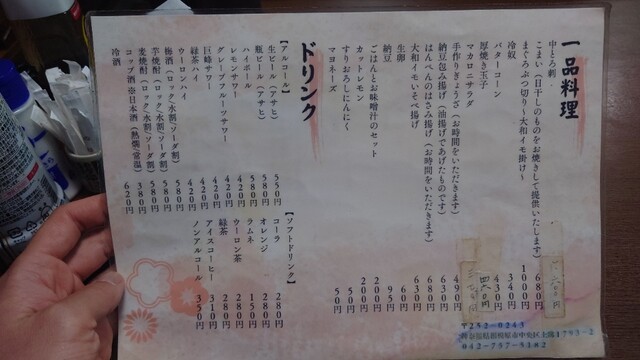 一品料理
中とろ刺
こまい(日干しのものをお焼きして提供いたします) 680円
まぐろぶつ切り~大和イモ掛け~ 1000円
冷奴 340円
バターコーン 430円
厚焼き玉子
マカロニサラダ
手作りぎょうざ(お時間をいただきます) 490円
納豆包み揚げ(油揚げであげたものです) 630円
はんぺんのはさみ揚げ(お時間をいただきます) 680円
大和イモいそべ揚げ 630円
生卵 60円
納豆 95円
ごはんとお味噌汁のセット 200円
カットレモン 200円
すりおろしにんにく 50円
マヨネーズ 50円
ドリンク
【アルコール】
生ビール(アサヒ) 550円
瓶ビール(アサヒ) 580円
ハイボール 580円
レモンサワー 420円
グレープフルーツサワー 420円
巨峰サワー 420円
緑茶ハイ 420円
ウーロンハイ 420円
梅酒(ロック/水割/ソーダ割) 580円
芋焼酎(ロック/水割/ソーダ割) 580円
麦焼酎(ロック/水割/ソーダ割) 580円
コップ酒 ※日本酒(熱燗/常温) 380円
冷酒 620円
【ソフトドリンク】
コーラ 280円
オレンジ 280円
ラムネ 150円
ウーロン茶 280円
緑茶 280円
アイスコーヒー 310円
ノンアルコール 350円
〒252-0243
神奈川県相模原市中央区上溝1793-2
042-757-5182